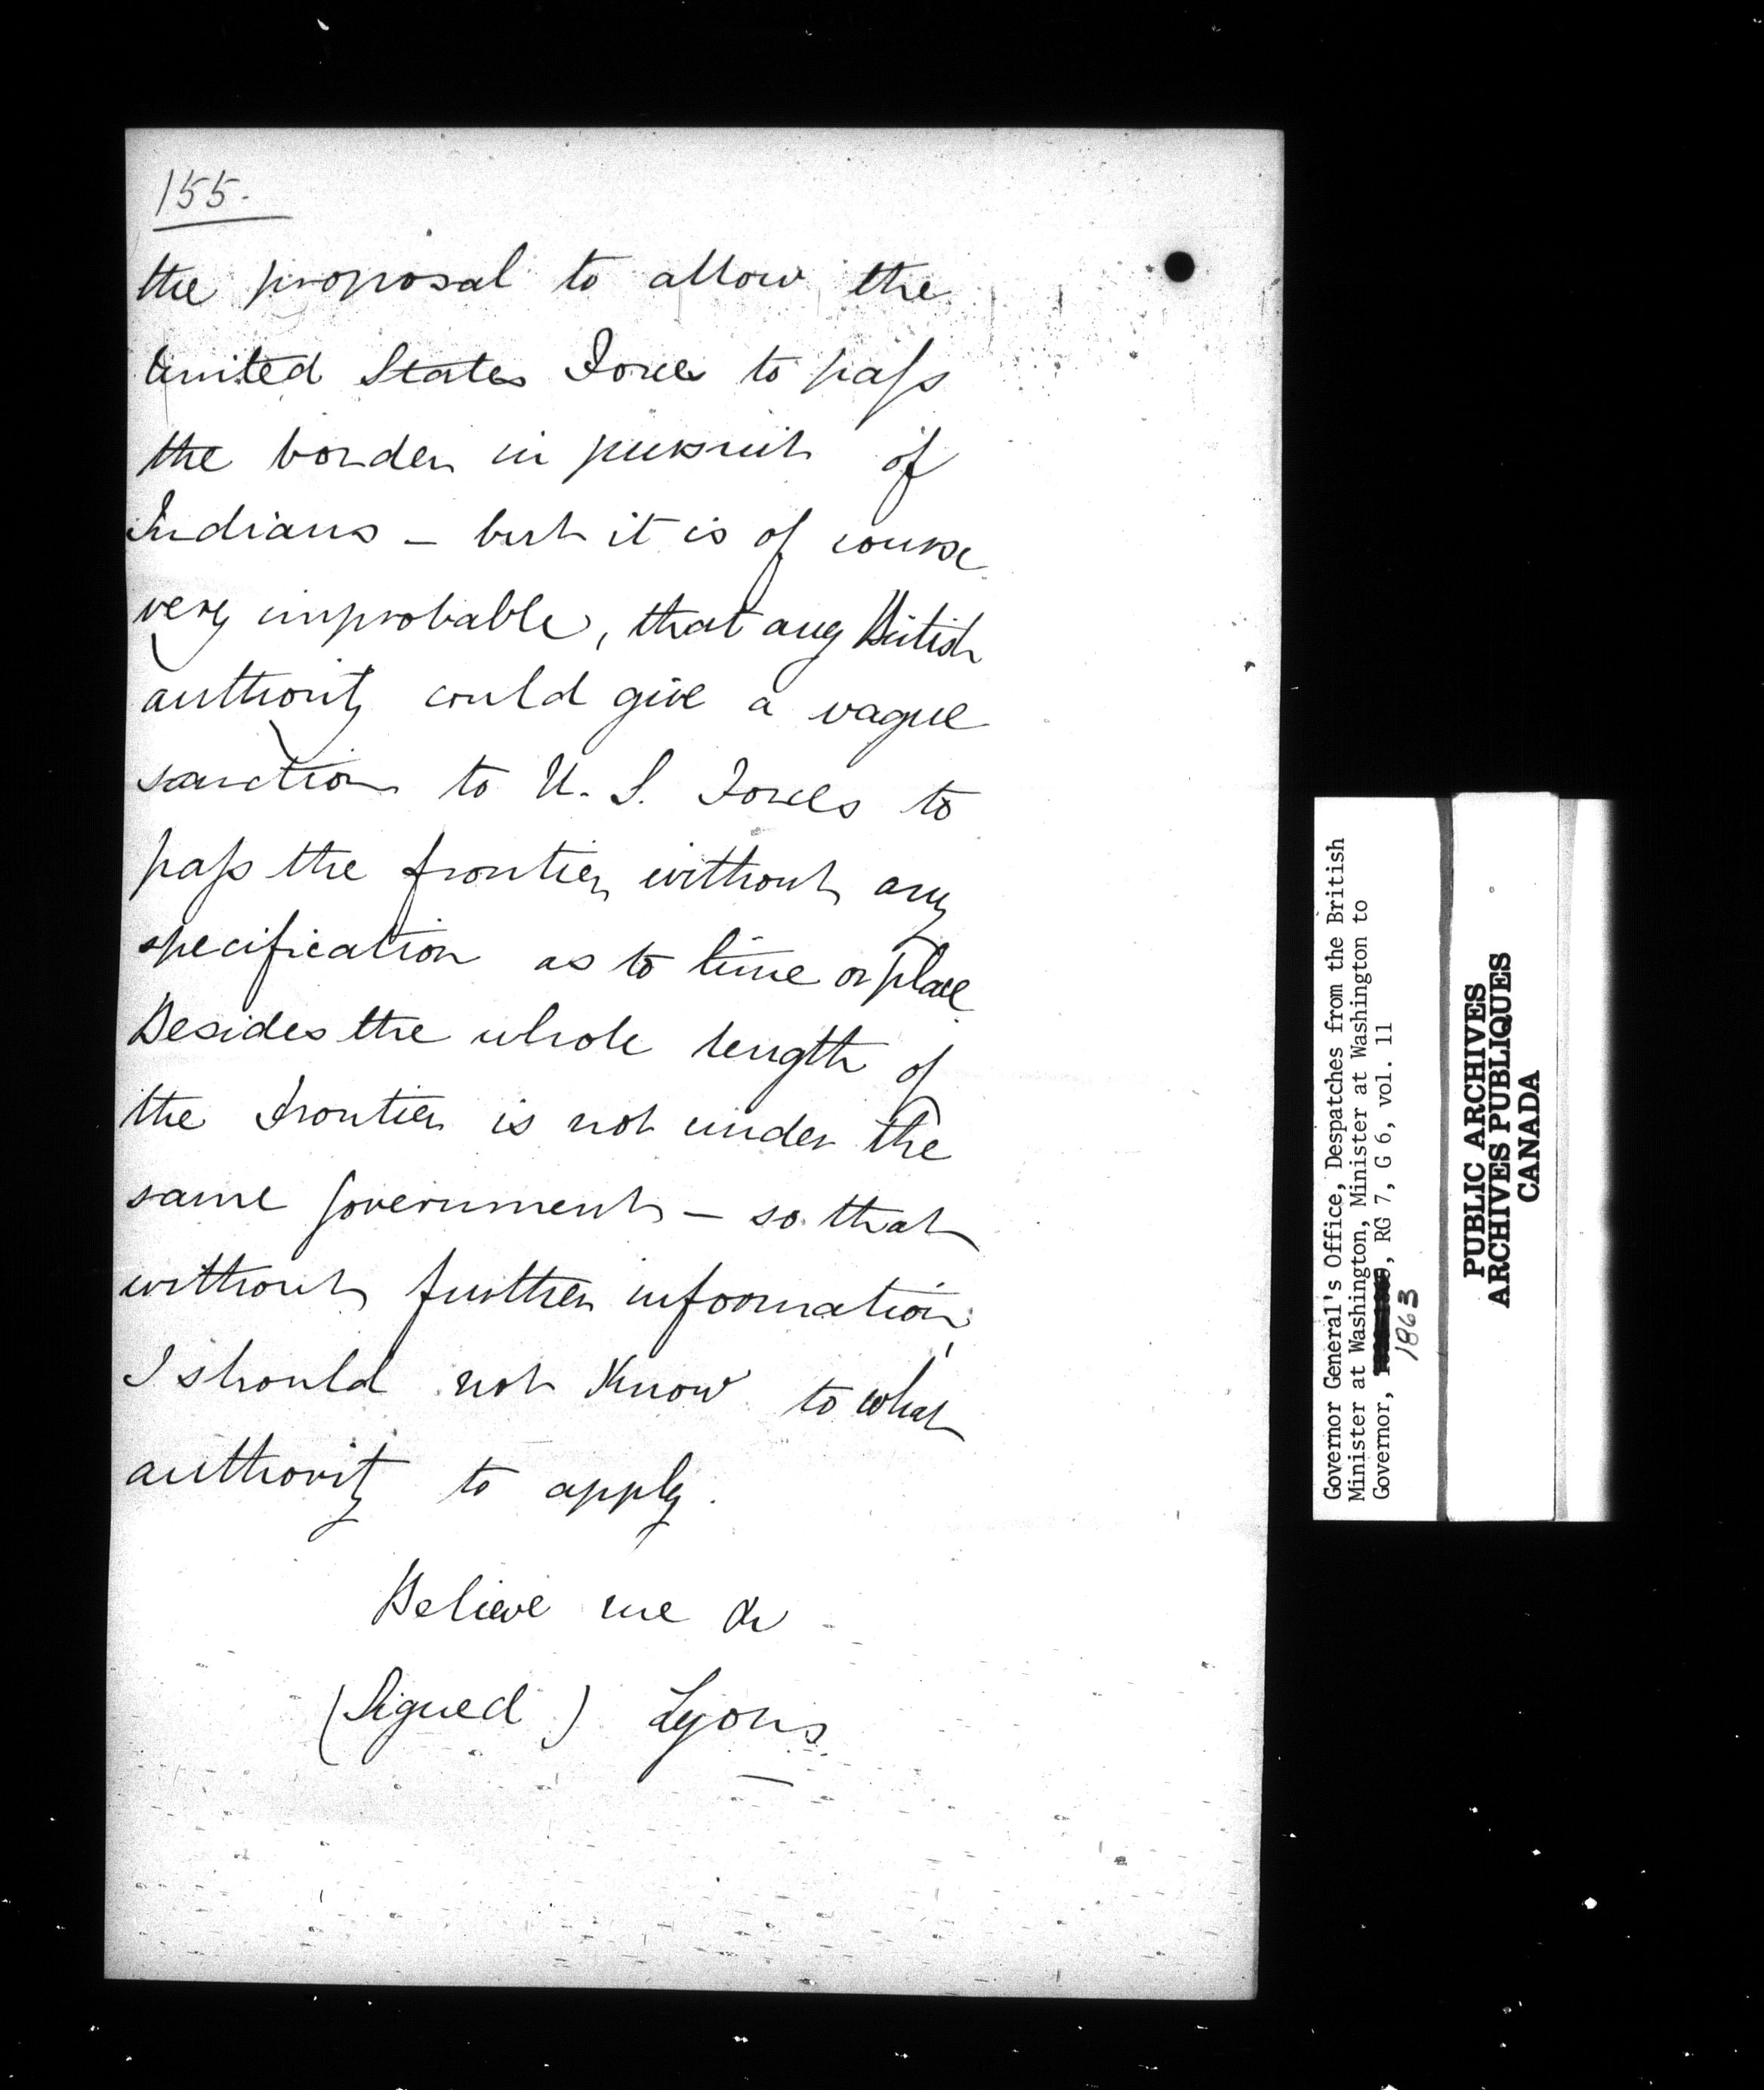 155.
the proposal to allow the
United States Forces to pass
the border in pursuit of
Indians - but it is of course
very improbable, that any British
authority could give a vague
sanction to U. S. Forces to
pass the frontier without any
specification as to time or place
Besides the whole length of
the Frontier is not under the
same Government - so that
without further information,
I should not know to what
authority to apply.
Believe me &c
(Signed) Lyons
Governor General's Office, Despatches from the British
Minister at Washington, Minister at Washington to
Governor, RG 7, G 6, vol. 11
1863
PUBLIC ARCHIVES
ARCHIVES PUBLIQUES
CANADA